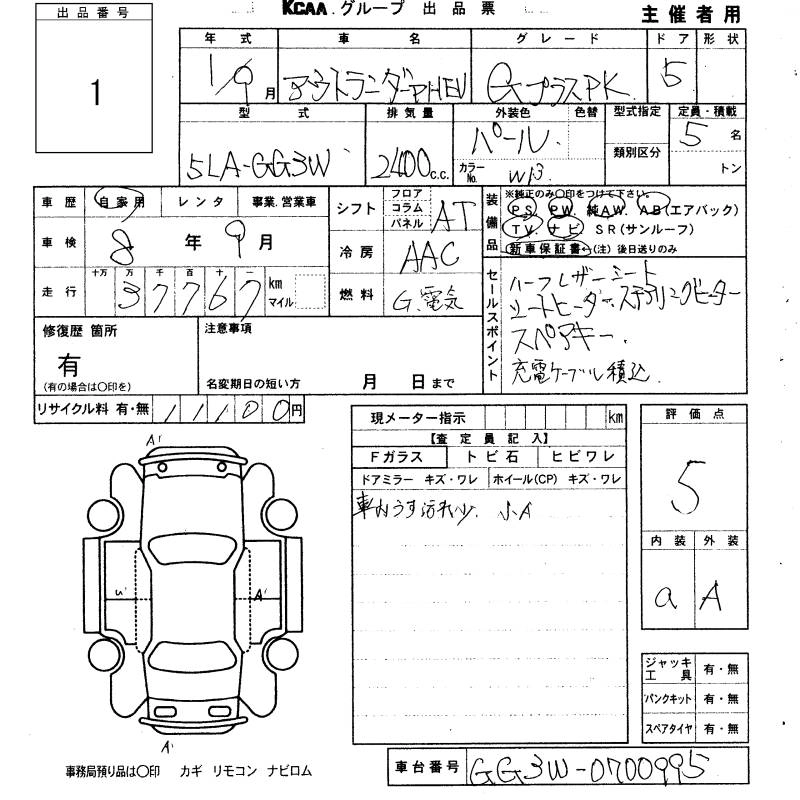 KCAA.グループ 出品票
主催者用
出品番号
1
年式 車名 グレード ドア 形状
1/9月 アウトランダーPHEV GプラスPK 5
型式 排気量 外装色 色替 型式指定 定員・積載
5LA-GG3W 2400c.c. パール 類別区分 5名
カラーNo. W13 トン
車歴 自家用 レンタ 事業.営業車
車検 8年 9月
走行 十万 万 千 百 十 一
37767 km マイル
シフト フロア コラム パネル AT
冷房 AAC
燃料 G.電気
装備品
※純正のみ〇印をつけて下さい。
PS PW. 純AW. AB(エアバック)
TV. ナビ SR(サンルーフ)
新車保証書←(注)後日送りのみ
セールスポイント
ハーフレザーシート
シートヒーター.ステアリングヒーター
スペアキー.
充電ケーブル積込.
修復歴 箇所
有
(有の場合は〇印を)
注意事項
名変期日の短い方 月 日まで
リサイクル料 有・無 11100円
現メーター指示 km
【査定員記入】
Fガラス トビ石 ヒビワレ
ドアミラー キズ・ワレ ホイール(CP) キズ・ワレ
車内うす汚れ少. 小A
評価点
5
内装 外装
a A
A'
U'
A'
A'
ジャッキ工具 有・無
パンクキット 有・無
スペアタイヤ 有・無
事務局預り品は〇印 カギ リモコン ナビロム
車台番号 GG3W-0700995